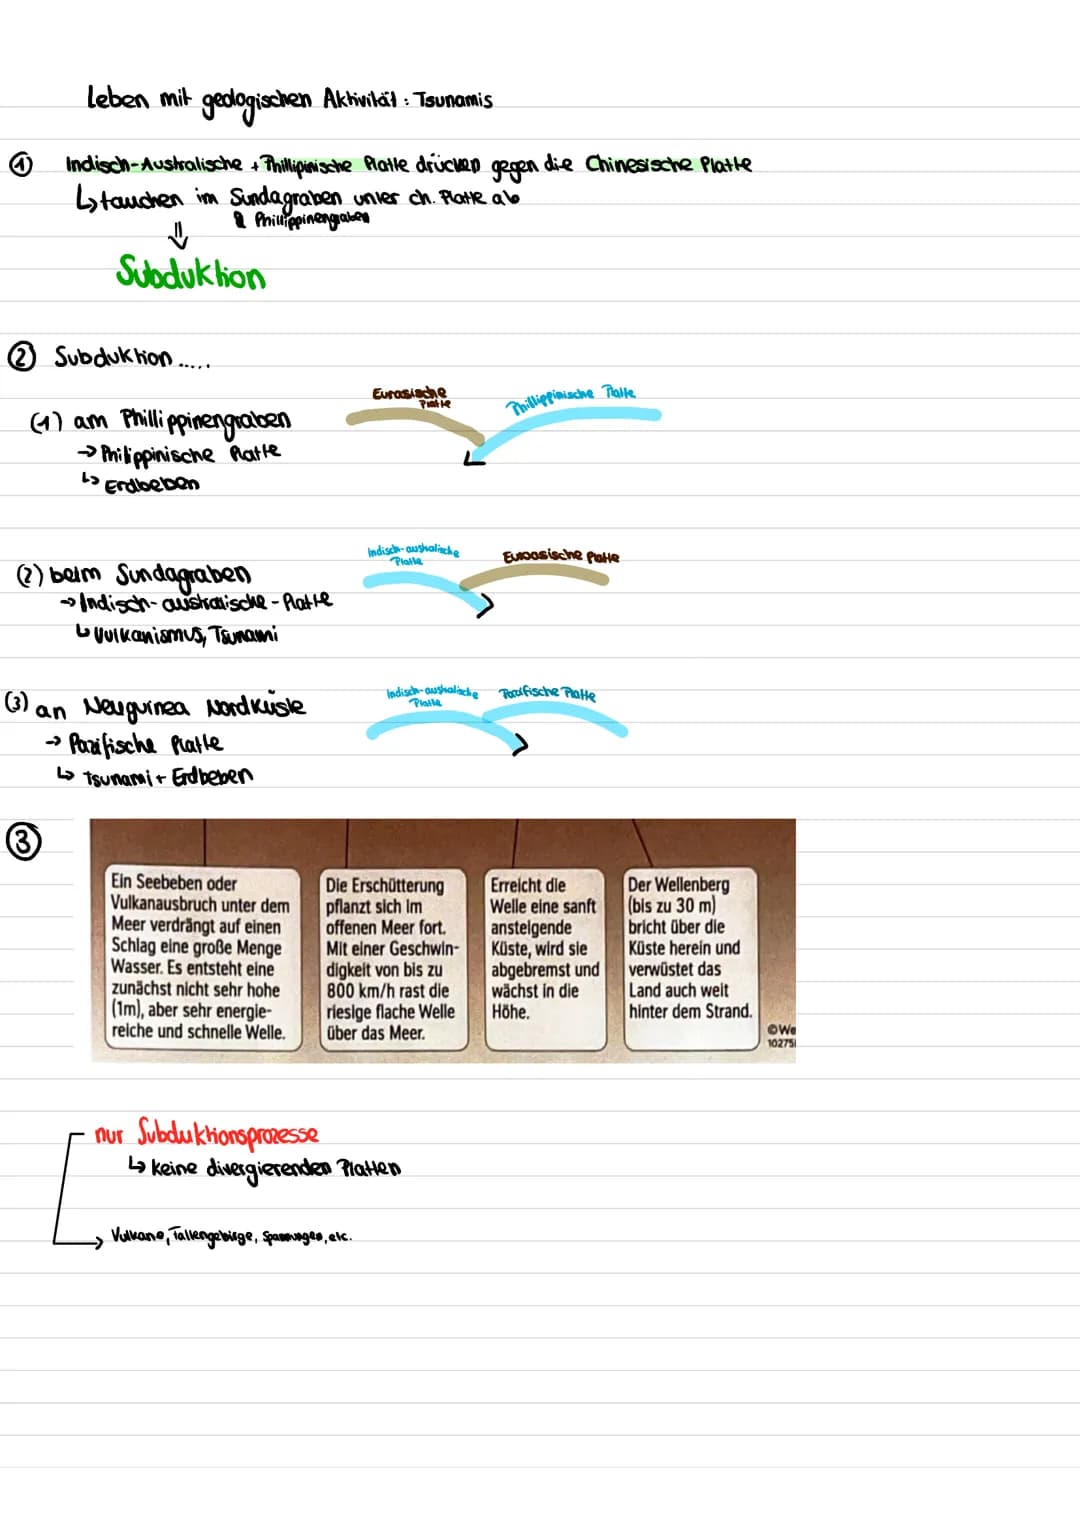 Leben mit geologischen Aktivität: Tsunamis
① Indisch-Australische + Phillipinische Platte drücken gegen die Chinesische Platte
↳ tauchen im Sundagraben unter ch. Platte ab
& Phillippinengraben
⇓
Subduktion
② Subduktion.....
(1) am Phillippinengraben
→ Philippinische Platte
↳ Erdbeben
Eurasische
Platte
Phillippinische Platte
(2) beim Sundagraben
→ Indisch-australische-Platte
↳ Vulkanismus, Tsunami
Indisch-australische
Platte
Euroasische Platte
(3) an Neuguinea Nordküste
→ Pazifische Platte
↳ Tsunami + Erdbeben
Indisch-australische
Platte
Pazifische Platte
③
Ein Seebeben oder
Vulkanausbruch unter dem
Meer verdrängt auf einen
Schlag eine große Menge
Wasser. Es entsteht eine
zunächst nicht sehr hohe
(1m), aber sehr energie-
reiche und schnelle Welle.
Die Erschütterung
pflanzt sich im
offenen Meer fort.
Mit einer Geschwin-
digkeit von bis zu
800 km/h rast die
riesige flache Welle
über das Meer.
Erreicht die
Welle eine sanft
ansteigende
Küste, wird sie
abgebremst und
wächst in die
Höhe.
Der Wellenberg
(bis zu 30 m)
bricht über die
Küste herein und
verwüstet das
Land auch weit
hinter dem Strand.
©We
10275
nur Subduktionsprozesse
↳ keine divergierenden Platten
→ Vulkane, Faltengebirge, Spannungen, etc.